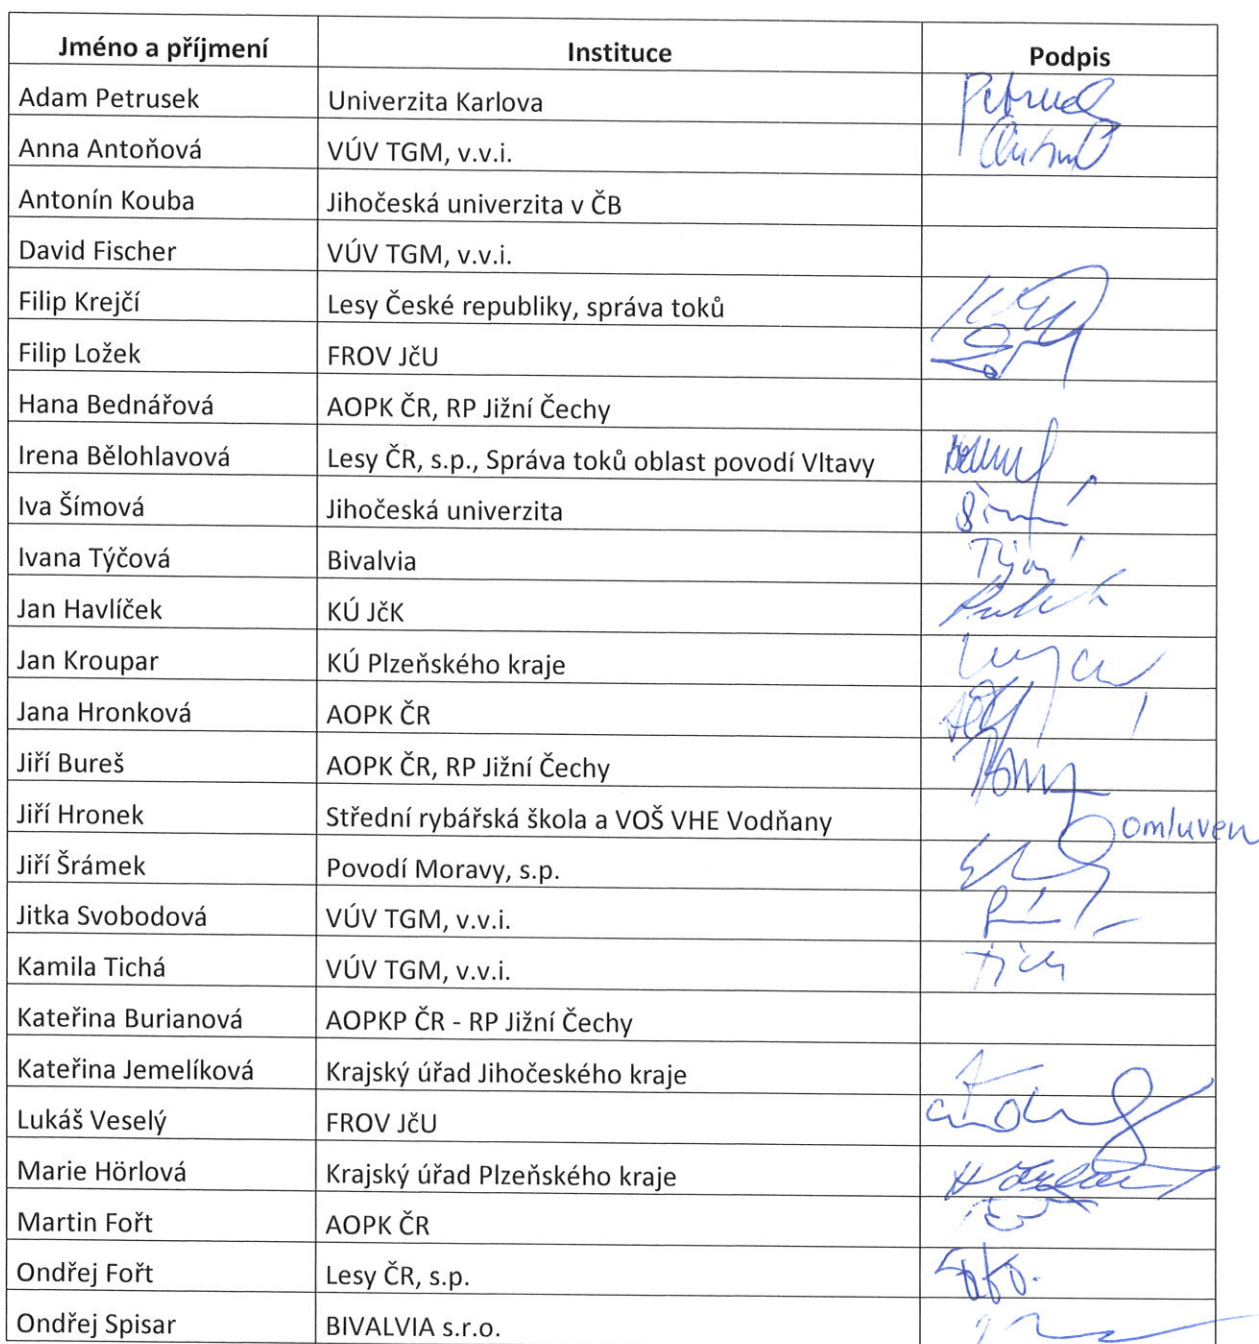 Jméno a příjmení Instituce Podpis
Adam Petrusek Univerzita Karlova
Anna Antoňová VÚV TGM, v.v.i.
Antonín Kouba Jihočeská univerzita v ČB
David Fischer VÚV TGM, v.v.i.
Filip Krejčí Lesy České republiky, správa toků
Filip Ložek FROV JčU
Hana Bednářová AOPK ČR, RP Jižní Čechy
Irena Bělohlavová Lesy ČR, s.p., Správa toků oblast povodí Vltavy
Iva Šímová Jihočeská univerzita
Ivana Týčová Bivalvia
Jan Havlíček KÚ JčK
Jan Kroupar KÚ Plzeňského kraje
Jana Hronková AOPK ČR
Jiří Bureš AOPK ČR, RP Jižní Čechy
Jiří Hronek Střední rybářská škola a VOŠ VHE Vodňany omluven
Jiří Šrámek Povodí Moravy, s.p.
Jitka Svobodová VÚV TGM, v.v.i.
Kamila Tichá VÚV TGM, v.v.i.
Kateřina Burianová AOPKP ČR - RP Jižní Čechy
Kateřina Jemelíková Krajský úřad Jihočeského kraje
Lukáš Veselý FROV JčU
Marie Hörlová Krajský úřad Plzeňského kraje
Martin Fořt AOPK ČR
Ondřej Fořt Lesy ČR, s.p.
Ondřej Spisar BIVALVIA s.r.o.